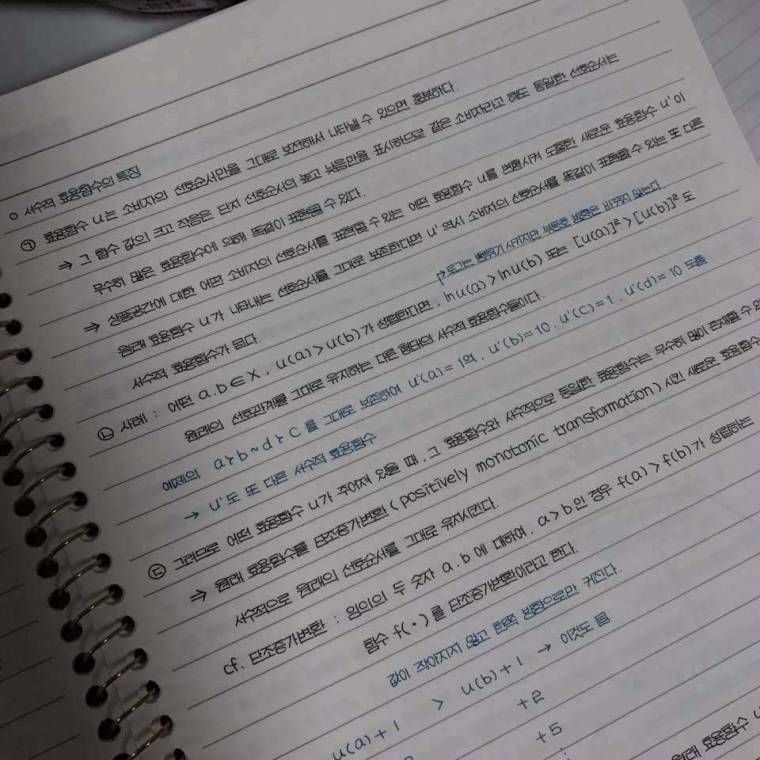 ○ 서수적 효용함수의 특징
㉠ 효용함수 u는 소비자의 선호순서만을 그대로 보전해서 나타낼 수 있으면 충분하다.
⇒ 그 함수 값의 크고 작음은 단지 선호순서의 높고 낮음만을 표시하므로 같은 소비자라고 해도 동일한 선호순서는
무수히 많은 효용함수에 의해 똑같이 표현될 수 있다.
⇒ 상품공간에 대한 어떤 소비자의 선호순서를 표현할 수 있는 어떤 효용함수 u를 변환시켜 도출한 새로운 효용함수 u'이
원래 효용함수 u가 나타내는 선호순서를 그대로 보존한다면 u' 역시 소비자의 선호순서를 똑같이 표현할 수 있는 또 다른
서수적 효용함수가 된다.
부등호 방향은 바뀌지 않는다
㉡ 사례 : 어떤 a.b∈X, u(a)>u(b)가 성립한다면, lnu(a)>lnu(b) 또는 [u(a)]²>[u(b)]²도
원래의 선호관계를 그대로 유지하는 다른 형태의 서수적 효용함수들이다.
예제의 a≻b~d≻c를 그대로 보존하여 u'(a)=1억, u'(b)=10, u'(c)=1, u'(d)=10 도출
→ u'도 또 다른 서수적 효용함수
㉢ 그러므로 어떤 효용함수 u가 주어져 있을 때, 그 효용함수와 서수적으로 동일한 효용함수는 무수히 많이 존재할 수 있
⇒ 원래 효용함수를 단조증가변환(positively monotonic transformation)시킨 새로운 효용함수
서수적으로 원래의 선호순서를 그대로 유지시킨다.
cf. 단조증가변환 : 임의의 두 숫자 a.b에 대하여, a>b인 경우 f(a)>f(b)가 성립하는
함수 f(·)를 단조증가변환이라고 한다.
값이 작아지지 않고 한쪽 방향으로만 커진다.
u(a)+1 > u(b)+1 → 이것도 됨
+2
+5
원래 효용함수